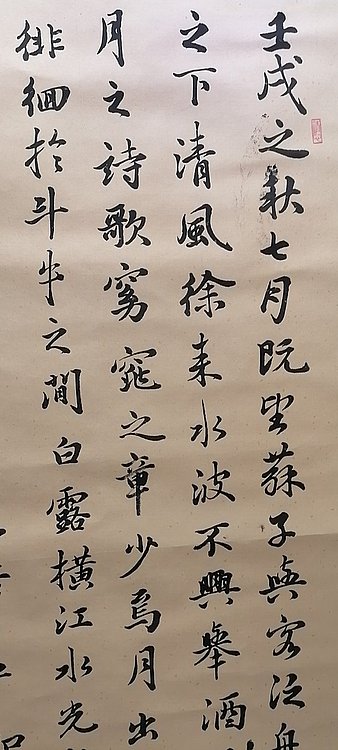 壬戌之秋七月既望蘇子與客泛舟
之下清風徐来水波不興舉酒
月之詩歌窈窕之章少焉月出
徘徊於斗牛之間白露横江水光